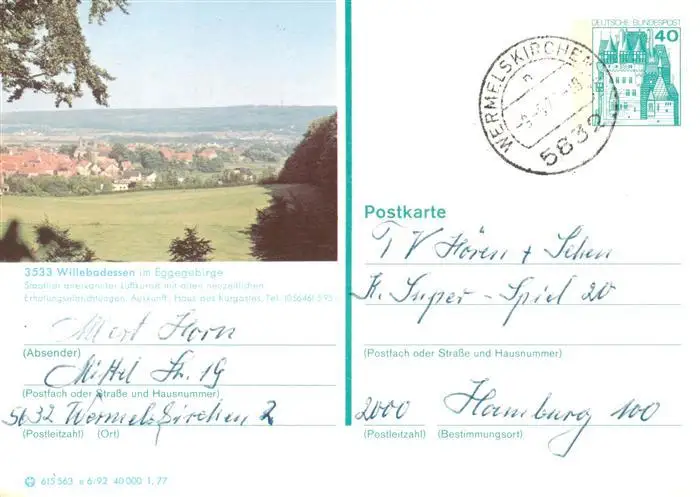 DEUTSCHE BUNDESPOST
40
WERMELSKIRCHEN
5632
3533 Willebadessen im Eggegebirge
Staatlich anerkannter Luftkurort mit allen neuzeitlichen
Erholungseinrichtungen. Auskunft: Haus des Kurgastes, Tel. (05646) 595
Horn
(Absender)
Mittel Str. 19
(Postfach oder Straße und Hausnummer)
5632 Wermelskirchen 2
(Postleitzahl) (Ort)
615 563 a 6/92 40 000 1. 77
Postkarte
TV Hören + Sehen
K. Super-Spiel 20
(Postfach oder Straße und Hausnummer)
2000 Hamburg 100
(Postleitzahl) (Bestimmungsort)